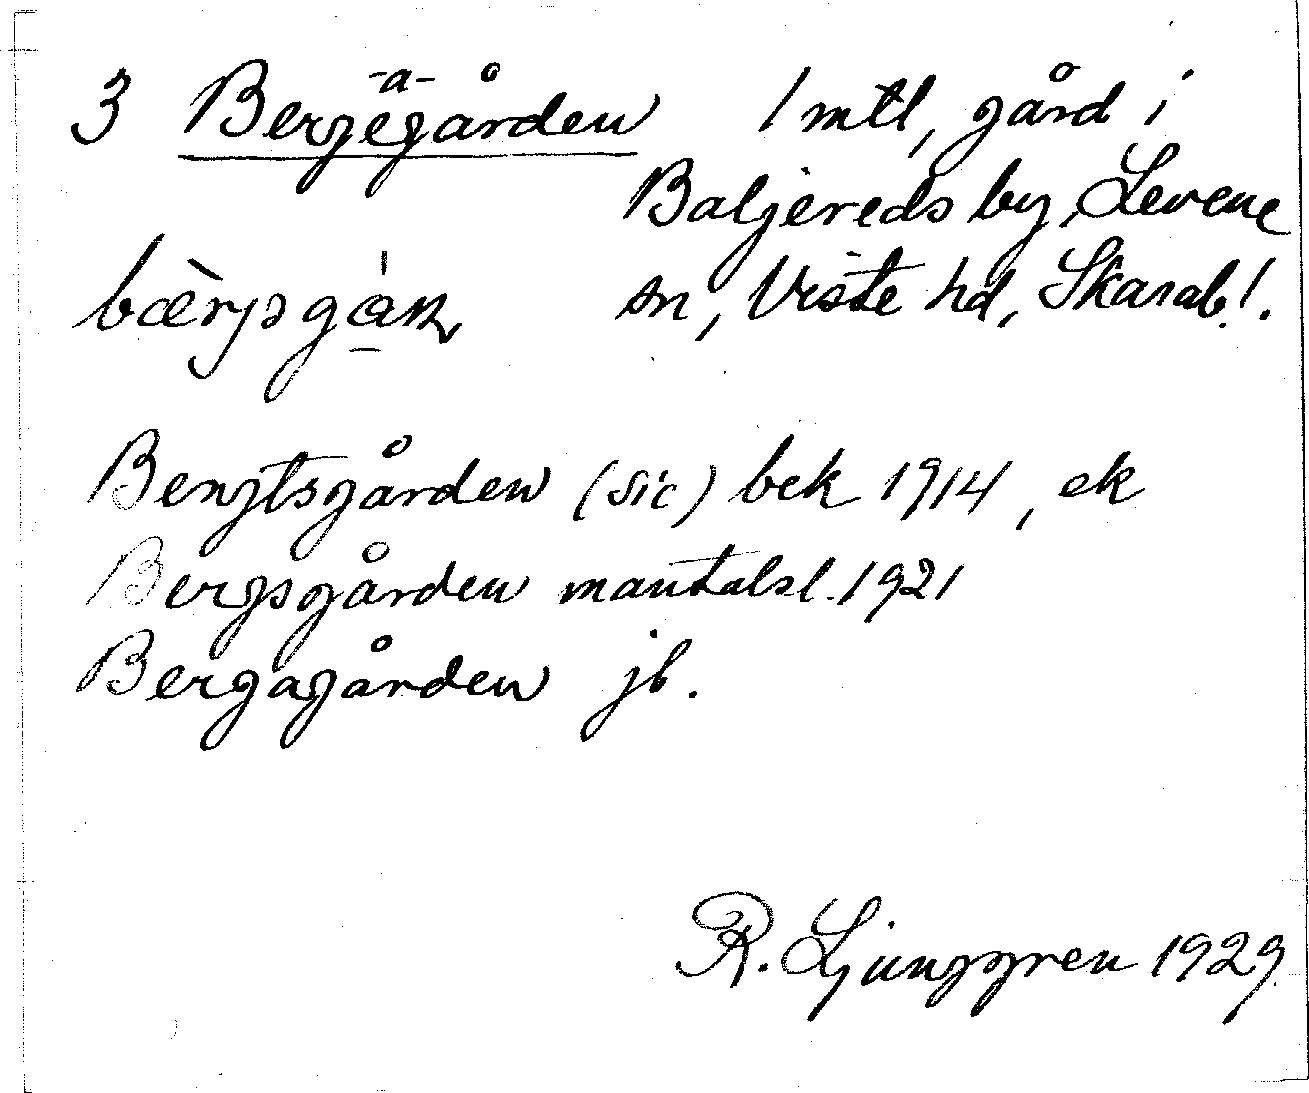 3 Bergegården -a- 1 mtl, gård i
Baljereds by, Levene
sn, Viste hd, Skarab. l.
Bengtsgården (sic) bek 1914, ek
Bergsgården mantalsl. 1921
Bergagården jb.
R. Ljunggren 1929